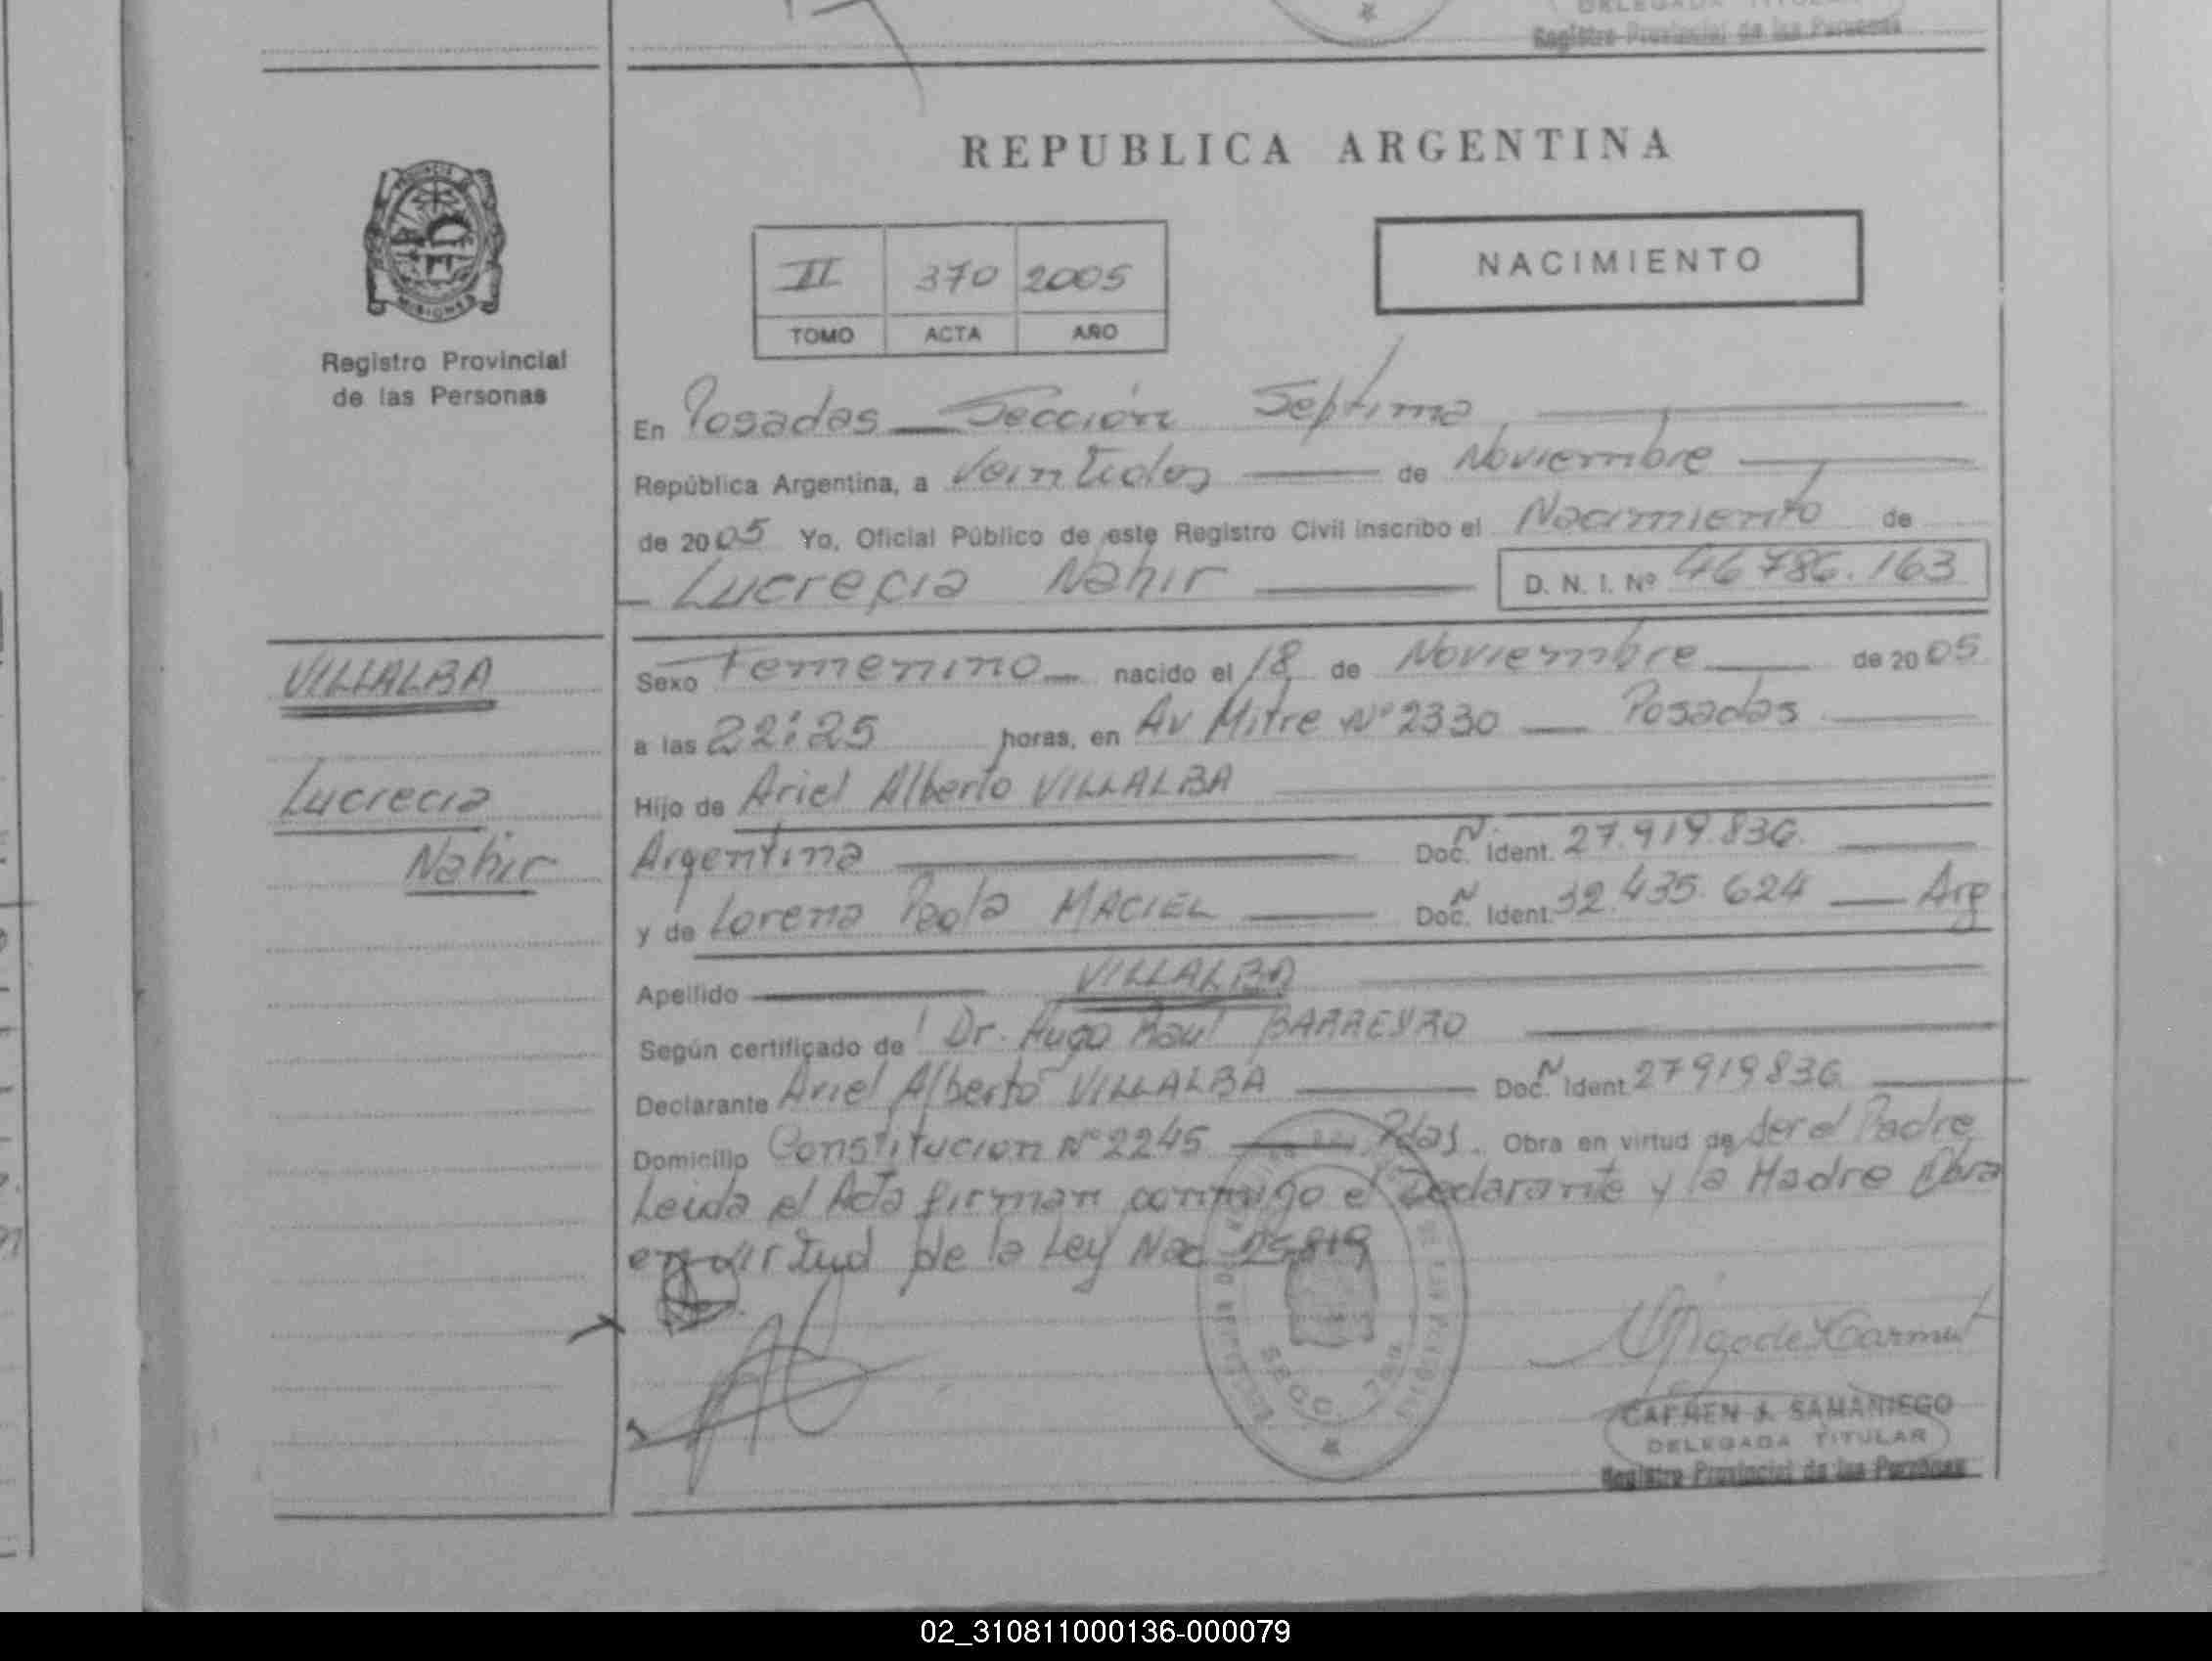 DELEGADA TITULAR
Registro Provincial de las Personas
REPUBLICA ARGENTINA
MISIONES
Registro Provincial
de las Personas
II 370 2005
TOMO ACTA AÑO
NACIMIENTO
En Posadas Sección Septima
República Argentina, a Veintidos de Noviembre
de 2005 Yo, Oficial Público de este Registro Civil inscribo el Nacimiento de
Lucrecia Nahir D. N. I. Nº 46786.163
VILLALBA
Lucrecia
Nahir
Sexo Femenino nacido el 18 de Noviembre de 2005
a las 22:25 horas, en Av Mitre Nº 2330 Posadas
Hijo de Ariel Alberto VILLALBA
Argentina Doc. N Ident. 27.919.836.
y de Lorena Paola MACIEL Doc. N Ident. 32.435.624 Arg
Apellido VILLALBA
Según certificado de Dr. Hugo Raul BARREYRO
Declarante Ariel Alberto VILLALBA Doc. N Ident. 27919836
Domicilio Constitucion Nº 2245 Pdas. Obra en virtud de ser el Padre
Leida el Acta firman conmigo el Declarante y la Madre Obra
en virtud de la Ley Nac 25.819
SECC. 7
SAMANIEGO
DELEGADA TITULAR
Registro Provincial de las Personas
02_310811000136-000079